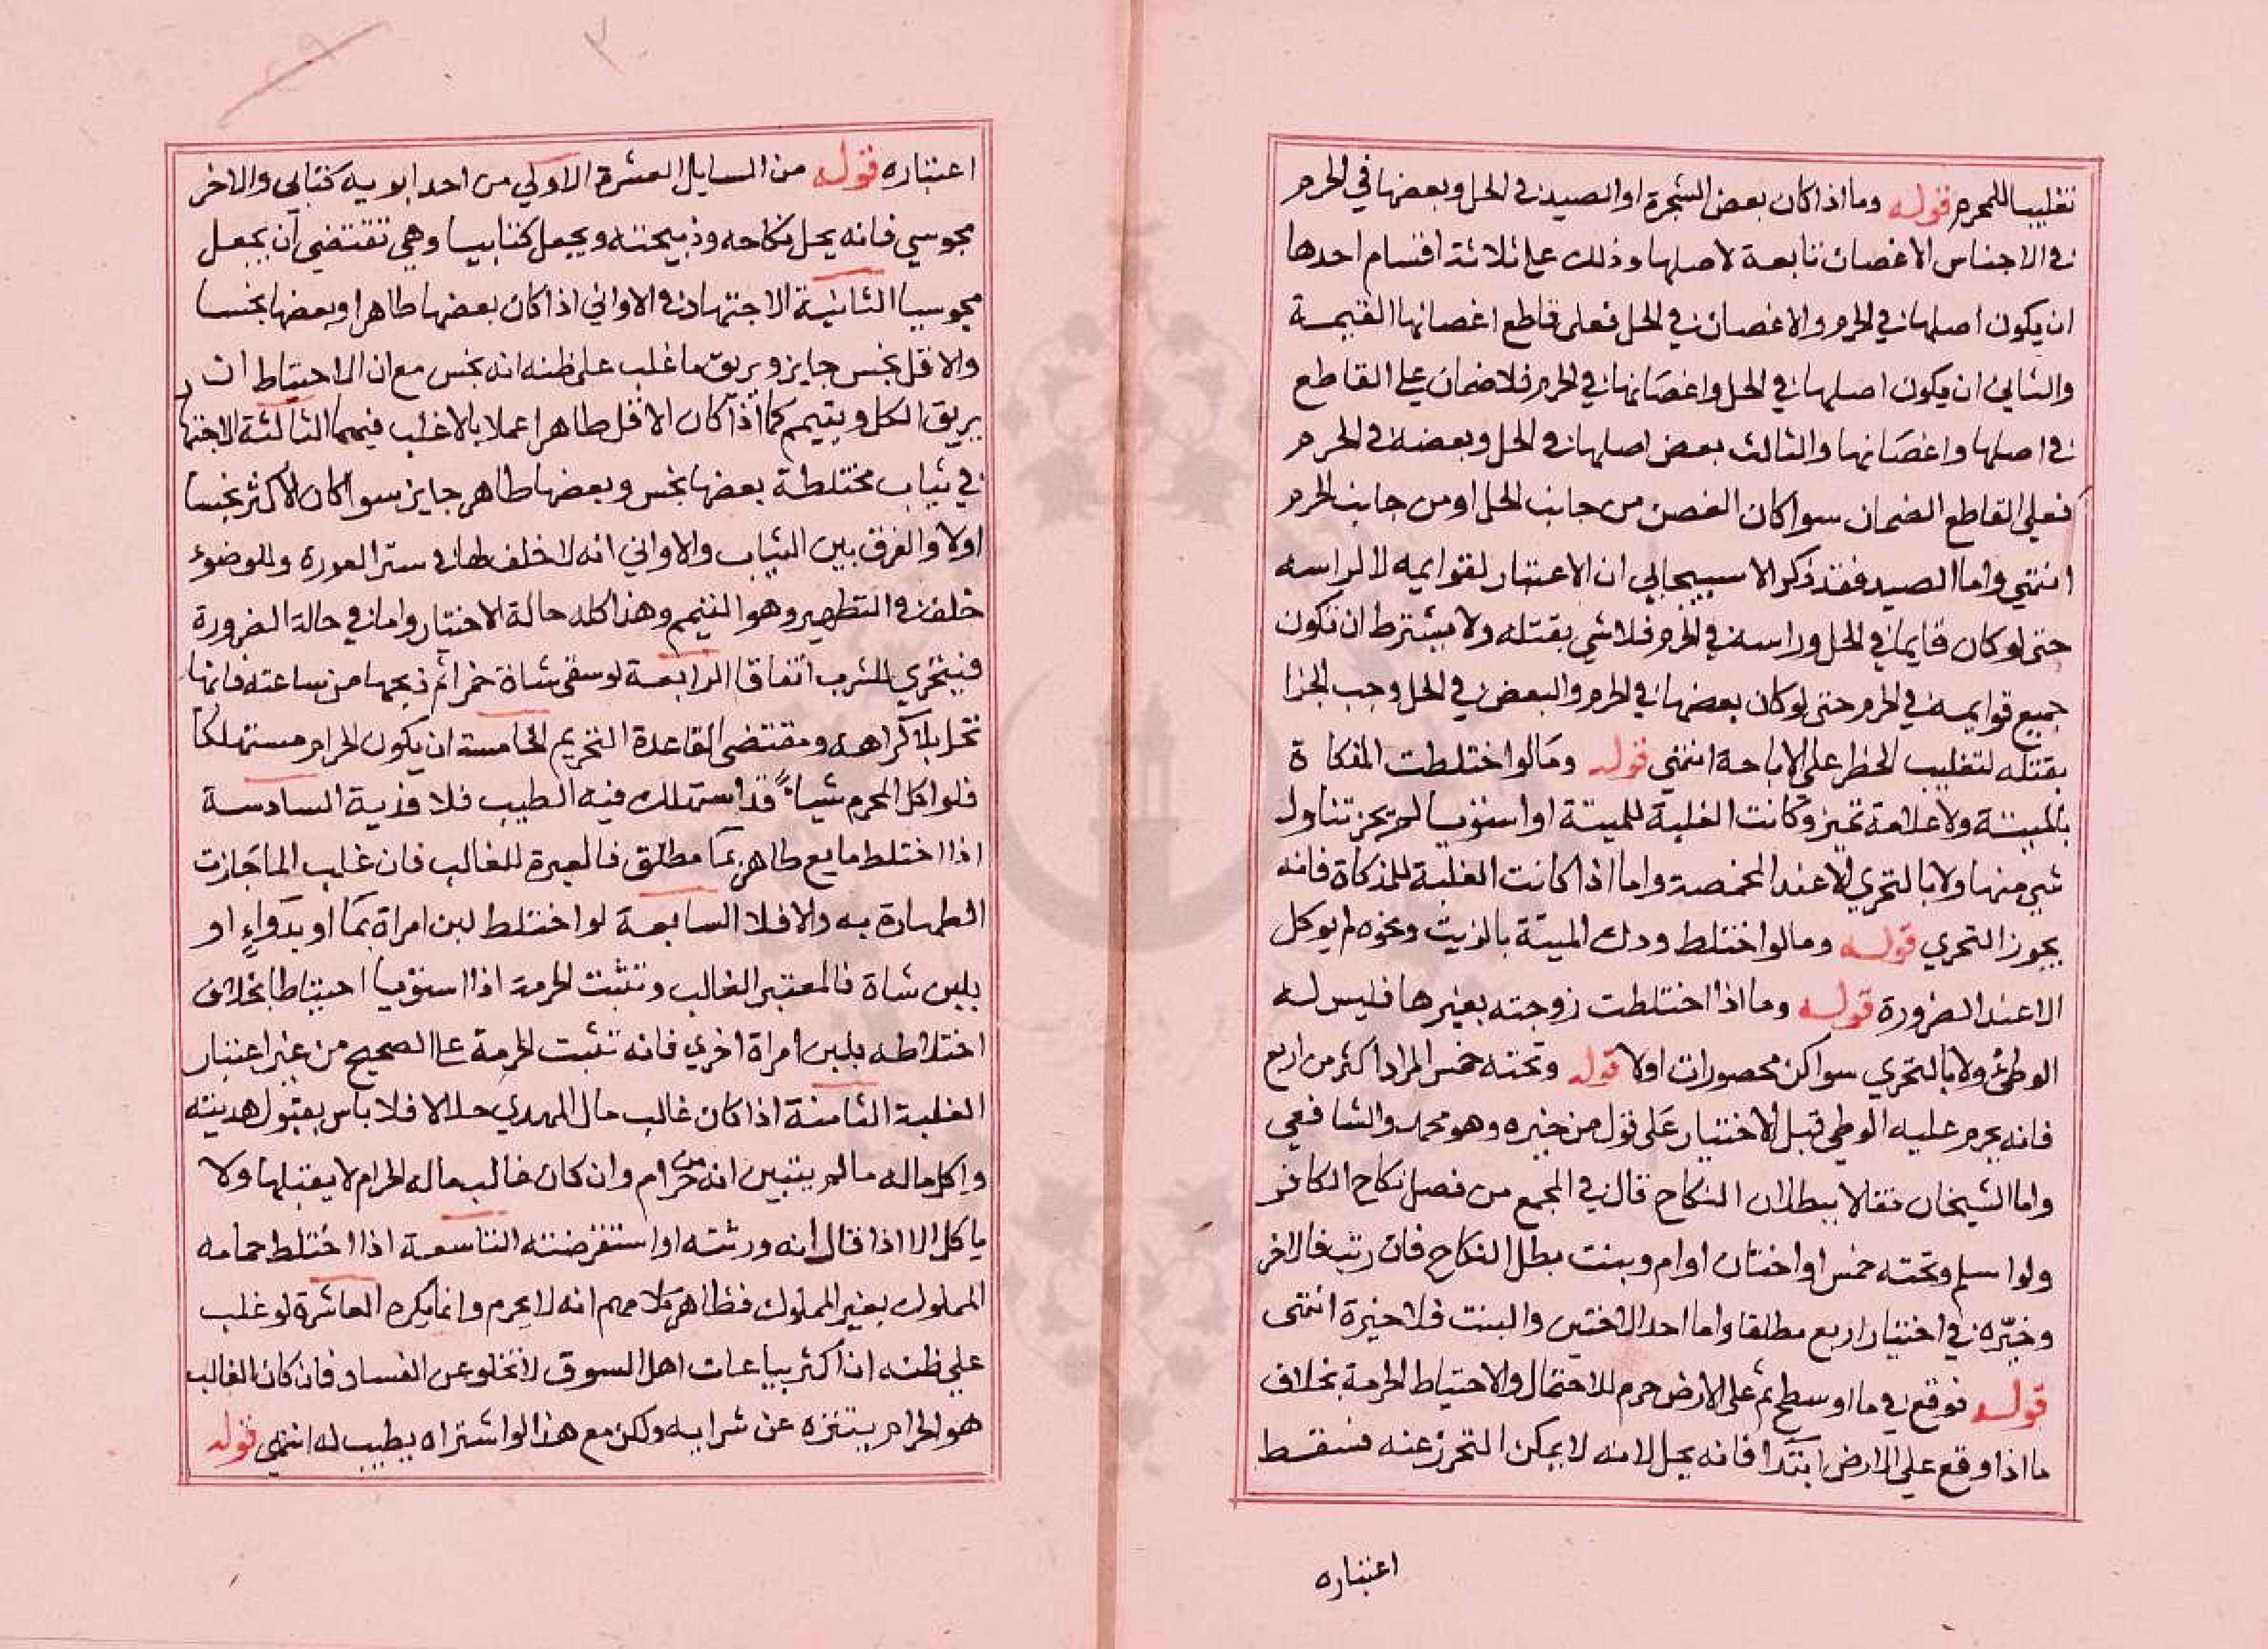 تغليبا للمحرم قوله وما اذا كان بعض الشجرة او الصيد في الحل وبعضها في الحرم
في الاجناس الاغصان تابعة لاصلها وذلك على ثلاثة اقسام احدها
ان يكون اصلها في الحرم والاغصان في الحل فعلى قاطع اغصانها القيمة
والثاني ان يكون اصلها في الحل واغصانها في الحرم فلا ضمان على القاطع
في اصلها واغصانها والثالث بعض اصلها في الحل وبعضه في الحرم
فعلى القاطع الضمان سوا كان الغصن من جانب الحل او من جانب الحرم
انتهي واما الصيد فقد ذكر الاسبيجابي ان الاعتبار لقوايمه لا لراسه
حتى لو كان قايما في الحل وراسه في الحرم فلا شي بقتله ولا يشترط ان تكون
جميع قوايمه في الحرم حتى لو كان بعضها في الحرم والبعض في الحل وجب الجزا
بقتله لتغليب الحظر على الاباحة انتهي قوله وما لوا اختلطت المذكاة
بالميتة ولا علامة تميز وكانت الغلبة للميتة او استويا لم يجز تناول
شي منها ولا بالتحري الا عند المخمصة واما اذا كانت الغلبة للمذكاة فانه
يجوز التحري قوله وما لوا اختلط ودك الميتة بالزيت ونحوه لم يوكل
الا عند الضرورة قوله وما اذا اختلطت زوجته بغيرها فليس له
الوطئ ولا بالتحري سوا كن محصورات اولا قوله وتحته خمس المراد اكثر من اربع
فانه يحرم عليه الوطي قبل الاختيار على قول من خيره وهو محمد والشافعي
واما الشيخان فقالا ببطلان النكاح قال في المجمع من فصل نكاح الكافر
ولو اسلم وتحته خمس او اختان او ام وبنت بطل النكاح فان رتب فالاخر
وخيّره في اختيار اربع مطلقا واما احد الاختين والبنت فلا خيرة انتهى
قوله فوقع في ما او سطح ثم على الارض حرم للاحتمال والاحتياط الحرمة بخلاف
ما اذا وقع على الارض ابتدا فانه يحل لانه لا يمكن التحرز عنه فسقط
اعتباره
اعتباره قوله من المسايل العشرة الاولي من احد ابويه كتابي والاخر
مجوسي فانه يحل نكاحه وذبيحته ويجعل كتابيا وهي تقتضي ان يجعل
مجوسيا الثانية الاجتهاد في الاواني اذا كان بعضها طاهرا وبعضها نجسا
والاقل نجس جايز ويريق ما غلب على ظنه انه نجس مع ان الاحتياط ان
يريق الكل ويتيمم كما اذا كان الاقل طاهرا عملا بالاغلب فيهما الثالثة الاجتهاد
في ثياب مختلطة بعضها نجس وبعضها طاهر جايز سوا كان الاكثر نجسا
اولا والفرق بين الثياب والاواني انه لا خلف لها في ستر العورة والوضوء
خلف في التطهير وهو التيمم وهذا كله حالة الاختيار واما في حالة الضرورة
فيتحري للشرب اتفاقا الرابعة لو سقى شاة خمرا ثم ذبحها من ساعته فانها
تحل بلا كراهه ومقتضى القاعدة التحريم الخامسة ان يكون الحرام مستهلكا
فلو اكل المحرم شياً قد استهلك فيه الطيب فلا فدية السادسة
اذا اختلط مايع طاهر بما مطلق فالعبرة للغالب فان غلب الما جازت
الطهارة به والا فلا السابعة لو اختلط لبن امراة بما او بدواءٍ او
بلبن شاة فالمعتبر الغالب وتثبت الحرمة اذا استويا احتياطا بخلاف
اختلاطه بلبن امراة اخري فانه تثبت الحرمة على الصحيح من غير اعتبار
الغلبة الثامنة اذا كان غالب مال المهدي حلالا فلا باس بقبول هديته
واكل ماله ما لم يتبين انه من حرام وان كان غالب ماله الحرام لا يقبلها ولا
ياكل الا اذا قال انه ورثته او استقرضته التاسعة اذا اختلط حمامه
المملوك بغير المملوك فظاهر كلامهم انه لا يحرم وانما يكره العاشرة لو غلب
على ظنه ان اكثر بياعات اهل السوق لا تخلو عن الفساد فان كان الغالب
هو الحرام يتنزه عن شرايه ولكن مع هذا لو اشتراه يطيب له انتهي قوله